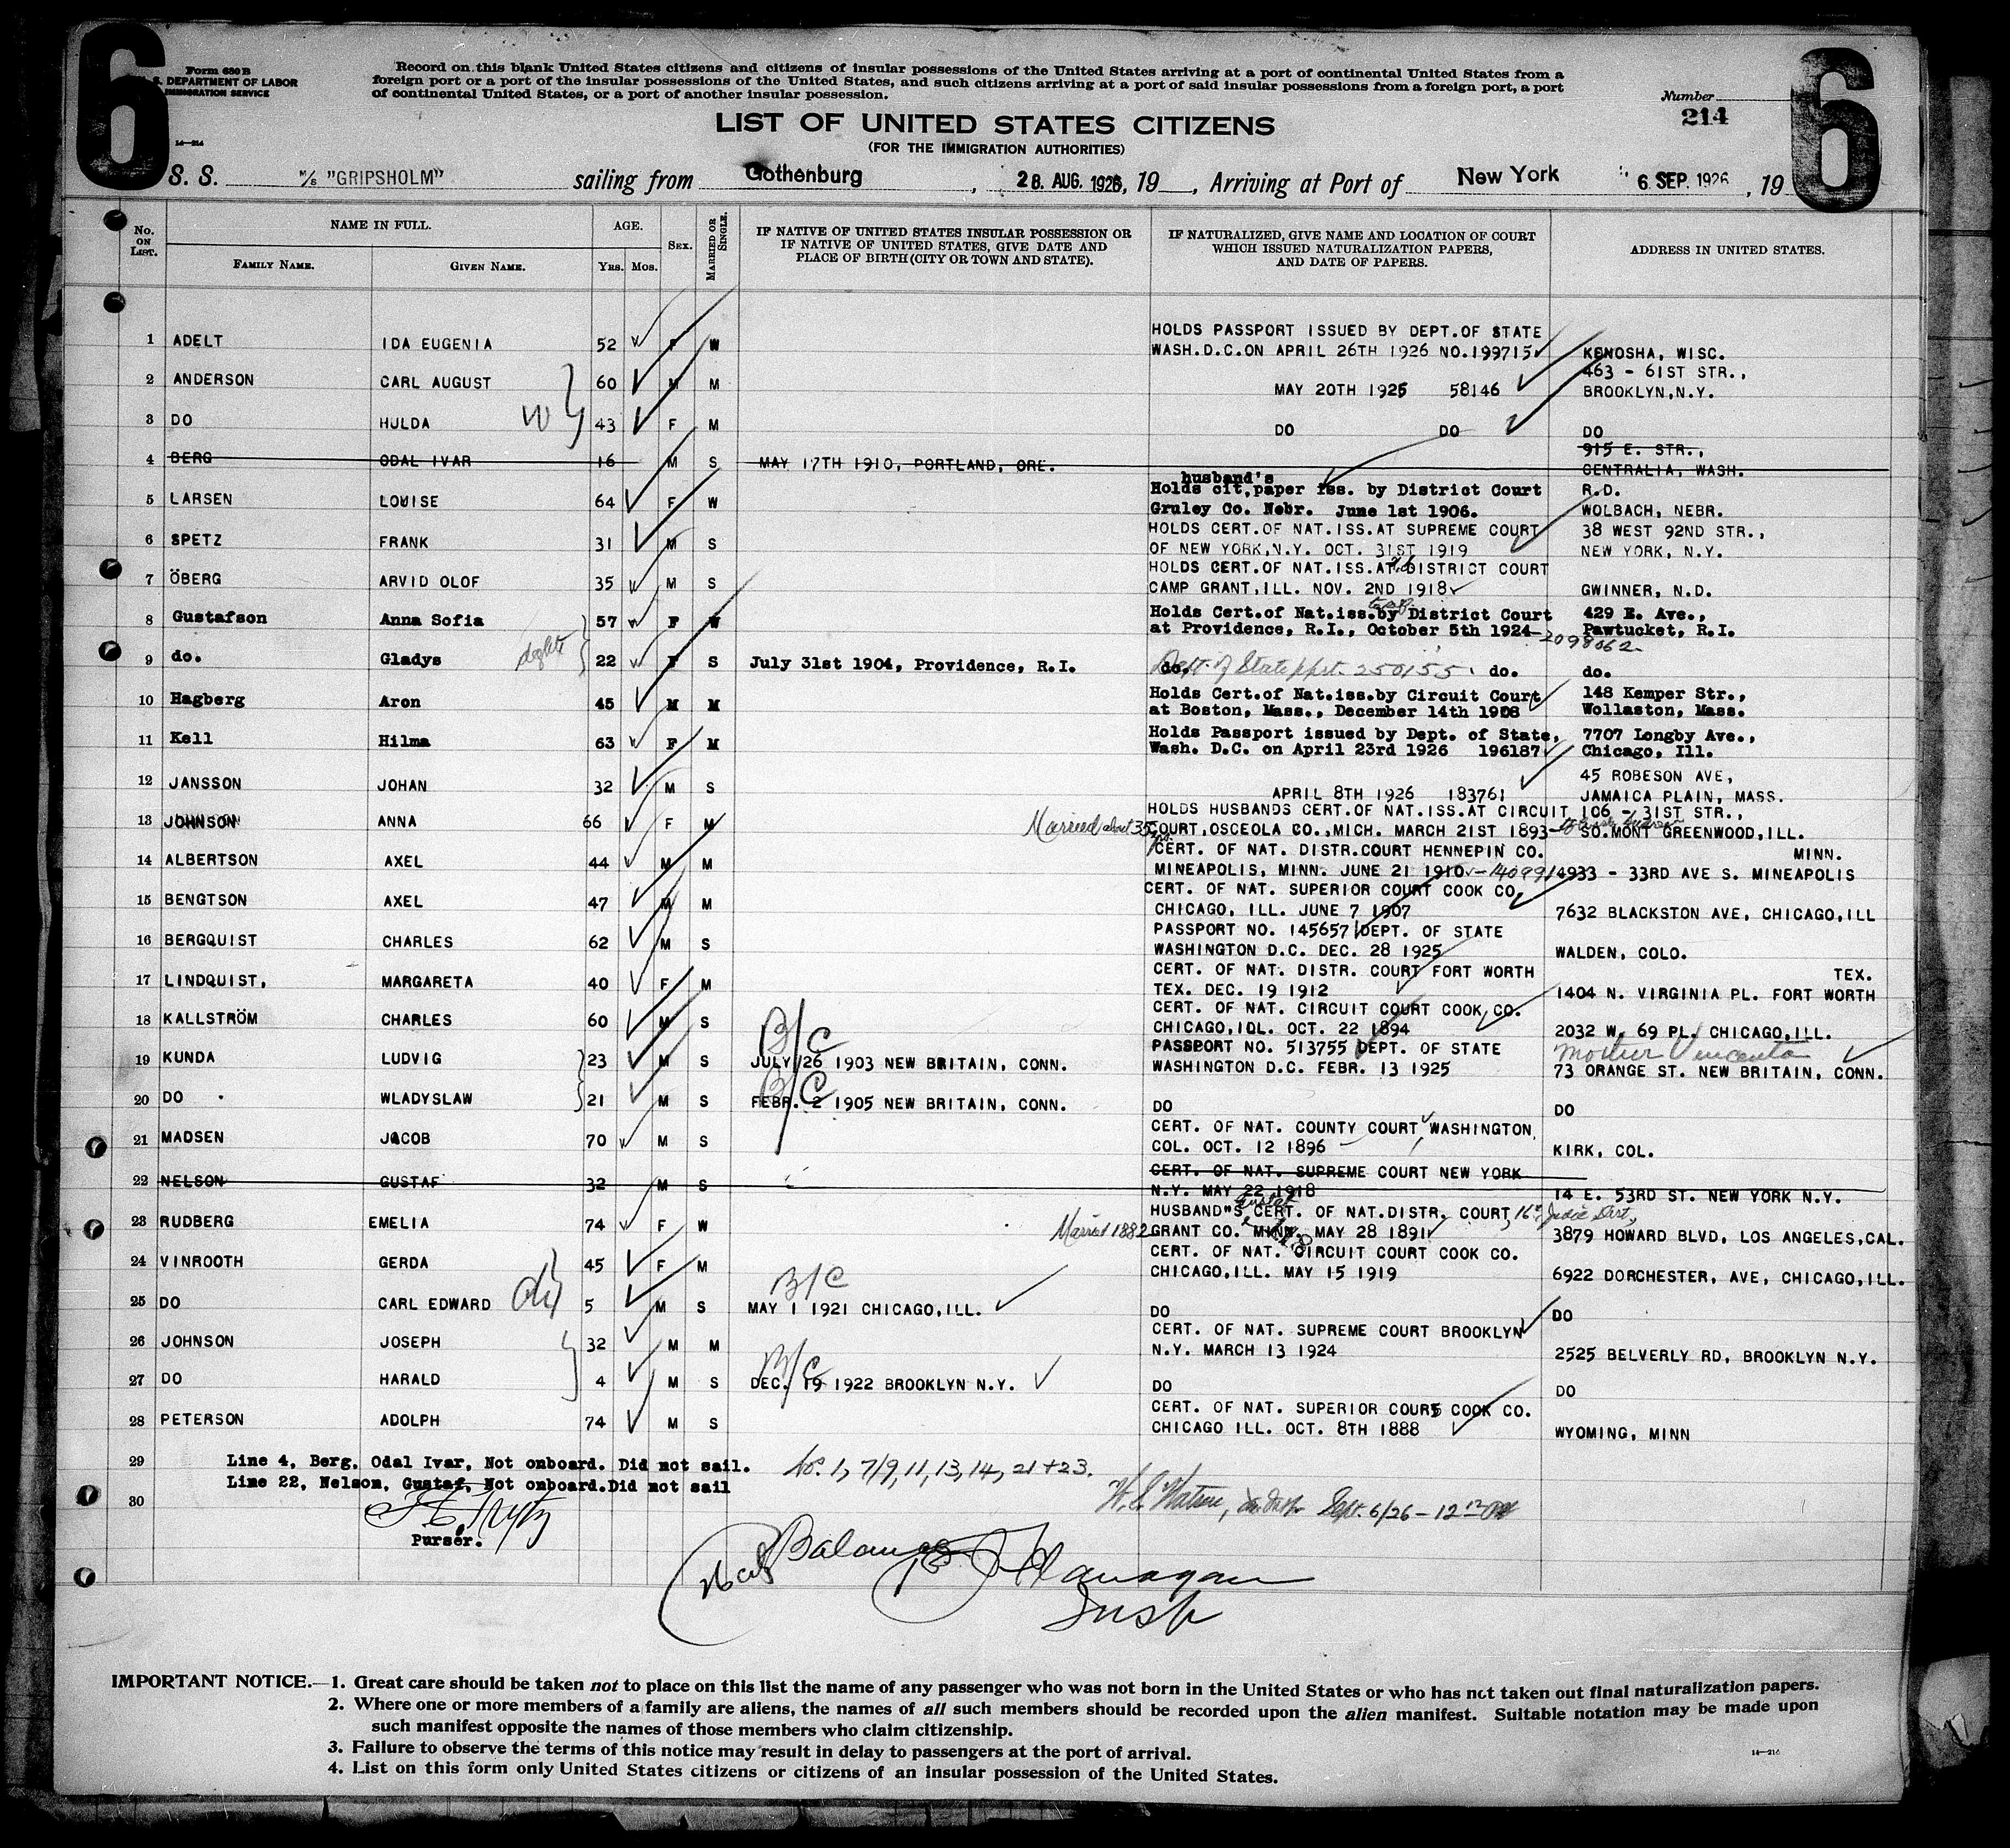 6
6
Form 630 B
U. S. DEPARTMENT OF LABOR
IMMIGRATION SERVICE
14—214
Record on this blank United States citizens and citizens of insular possessions of the United States arriving at a port of continental United States from a
foreign port or a port of the insular possessions of the United States, and such citizens arriving at a port of said insular possessions from a foreign port, a port
of continental United States, or a port of another insular possession.
Number
214
LIST OF UNITED STATES CITIZENS
(FOR THE IMMIGRATION AUTHORITIES)
S. S. M/S "GRIPSHOLM" sailing from Gothenburg, 28. AUG. 1926, 19 , Arriving at Port of New York 6 SEP. 1926 , 19
No. ON LIST. NAME IN FULL. AGE. SEX. MARRIED OR SINGLE. IF NATIVE OF UNITED STATES INSULAR POSSESSION OR IF NATIVE OF UNITED STATES, GIVE DATE AND PLACE OF BIRTH (CITY OR TOWN AND STATE). IF NATURALIZED, GIVE NAME AND LOCATION OF COURT WHICH ISSUED NATURALIZATION PAPERS, AND DATE OF PAPERS. ADDRESS IN UNITED STATES.
FAMILY NAME. GIVEN NAME. YRS. MOS.
HOLDS PASSPORT ISSUED BY DEPT.OF STATE
1 ADELT IDA EUGENIA 52 F W WASH.D.C.ON APRIL 26TH 1926 NO.199715 KENOSHA, WISC.
463 - 61ST STR.,
2 ANDERSON CARL AUGUST 60 M M MAY 20TH 1925 58146 BROOKLYN,N.Y.
3 DO HULDA W 43 F M DO DO DO
915 E. STR.,
4 BERG ODAL IVAR 16 M S MAY 17TH 1910, PORTLAND, ORE. CENTRALIA, WASH.
husband's
Holds cit,paper iss. by District Court R.D.
5 LARSEN LOUISE 64 F W Gruley Co. Nebr. June 1st 1906. WOLBACH, NEBR.
HOLDS CERT.OF NAT.ISS.AT SUPREME COURT 38 WEST 92ND STR.,
6 SPETZ FRANK 31 M S OF NEW YORK,N.Y. OCT. 31ST 1919 NEW YORK, N.Y.
HOLDS CERT.OF NAT.ISS.AT DISTRICT COURT
7 ÖBERG ARVID OLOF 35 M S CAMP GRANT,ILL. NOV. 2ND 1918 GWINNER, N.D.
Holds Cert.of Nat.iss.by District Court 429 E. Ave.,
8 Gustafson Anna Sofia 57 F W at Providence, R.I., October 5th 1924- Pawtucket, R.I.
2098062
9 do. Gladys 22 F S July 31st 1904, Providence, R.I. do. Dept. of State ppt. 250155 do. do.
Holds Cert.of Nat.iss.by Circuit Court 148 Kemper Str.,
10 Hagberg Aron 45 M M at Boston, Mass., December 14th 1908 Wollaston, Mass.
Holds Passport issued by Dept. of State, 7707 Longby Ave.,
11 Kell Hilma 63 F M Wash. D.C. on April 23rd 1926 196187 Chicago, Ill.
45 ROBESON AVE,
12 JANSSON JOHAN 32 M S APRIL 8TH 1926 183761 JAMAICA PLAIN, MASS.
HOLDS HUSBANDS CERT.OF NAT.ISS.AT CIRCUIT 106 - 31ST STR.,
13 JOHNSON ANNA 66 F M Married about 35 COURT,OSCEOLA CO.,MICH. MARCH 21ST 1893- SO.MONT GREENWOOD,ILL.
CERT. OF NAT. DISTR.COURT HENNEPIN CO. MINN.
14 ALBERTSON AXEL 44 M M MINEAPOLIS, MINN. JUNE 21 1910 -140991 4933 - 33RD AVE S. MINEAPOLIS
CERT. OF NAT. SUPERIOR COURT COOK CO
15 BENGTSON AXEL 47 M M CHICAGO, ILL. JUNE 7 1907 7632 BLACKSTON AVE, CHICAGO,ILL
PASSPORT NO. 145657 DEPT. OF STATE
16 BERGQUIST CHARLES 62 M S WASHINGTON D.C. DEC. 28 1925 WALDEN, COLO.
CERT. OF NAT. DISTR. COURT FORT WORTH TEX.
17 LINDQUIST, MARGARETA 40 F M TEX. DEC. 19 1912 1404 N. VIRGINIA PL. FORT WORTH
CERT. OF NAT. CIRCUIT COURT COOK CO.
18 KALLSTRÖM CHARLES 60 M S CHICAGO,IOL. OCT. 22 1894 2032 W. 69 PL. CHICAGO,ILL.
B/C PASSPORT NO. 513755 DEPT. OF STATE Mother Vincenta
19 KUNDA LUDVIG 23 M S JULY 26 1903 NEW BRITAIN, CONN. WASHINGTON D.C. FEBR. 13 1925 73 ORANGE ST. NEW BRITAIN, CONN.
B/C
20 DO WLADYSLAW 21 M S FEBR. 2 1905 NEW BRITAIN, CONN. DO DO
CERT. OF NAT. COUNTY COURT WASHINGTON,
21 MADSEN JACOB 70 M S COL. OCT. 12 1896 KIRK, COL.
CERT. OF NAT. SUPREME COURT NEW YORK
22 NELSON GUSTAF 32 M S N.Y. MAY 22 1918 14 E. 53RD ST. NEW YORK N.Y.
Gustaf
HUSBAND"S CERT. OF NAT.DISTR. COURT, 16th Judic Dist,
23 RUDBERG EMELIA 74 F W Married 1882 GRANT CO. MINN. MAY 28 1891 3879 HOWARD BLVD, LOS ANGELES,CAL.
CERT. OF NAT. CIRCUIT COURT COOK CO.
24 VINROOTH GERDA 45 F M CHICAGO,ILL. MAY 15 1919 6922 DORCHESTER, AVE, CHICAGO,ILL.
B/C
25 DO CARL EDWARD 5 M S MAY 1 1921 CHICAGO,ILL. DO DO
CERT. OF NAT. SUPREME COURT BROOKLYN
26 JOHNSON JOSEPH 32 M M N.Y. MARCH 13 1924 2525 BELVERLY RD, BROOKLYN N.Y.
B/C
27 DO HARALD 4 M S DEC. 19 1922 BROOKLYN N.Y. DO DO
CERT. OF NAT. SUPERIOR COURS COOK CO.
28 PETERSON ADOLPH 74 M S CHICAGO ILL. OCT. 8TH 1888 WYOMING, MINN
29 Line 4, Berg, Odal Ivar, Not onboard. Did not sail. No. 1, 7/9, 11, 13, 14, 21 + 23.
Line 22, Nelson, Gustaf, Not onboard.Did not sail
30 Sept. 6/26 - 12
Purser.
Balance
Flanagan
Insp
IMPORTANT NOTICE.—1. Great care should be taken not to place on this list the name of any passenger who was not born in the United States or who has not taken out final naturalization papers.
2. Where one or more members of a family are aliens, the names of all such members should be recorded upon the alien manifest. Suitable notation may be made upon
such manifest opposite the names of those members who claim citizenship.
3. Failure to observe the terms of this notice may result in delay to passengers at the port of arrival.
4. List on this form only United States citizens or citizens of an insular possession of the United States.
14—214